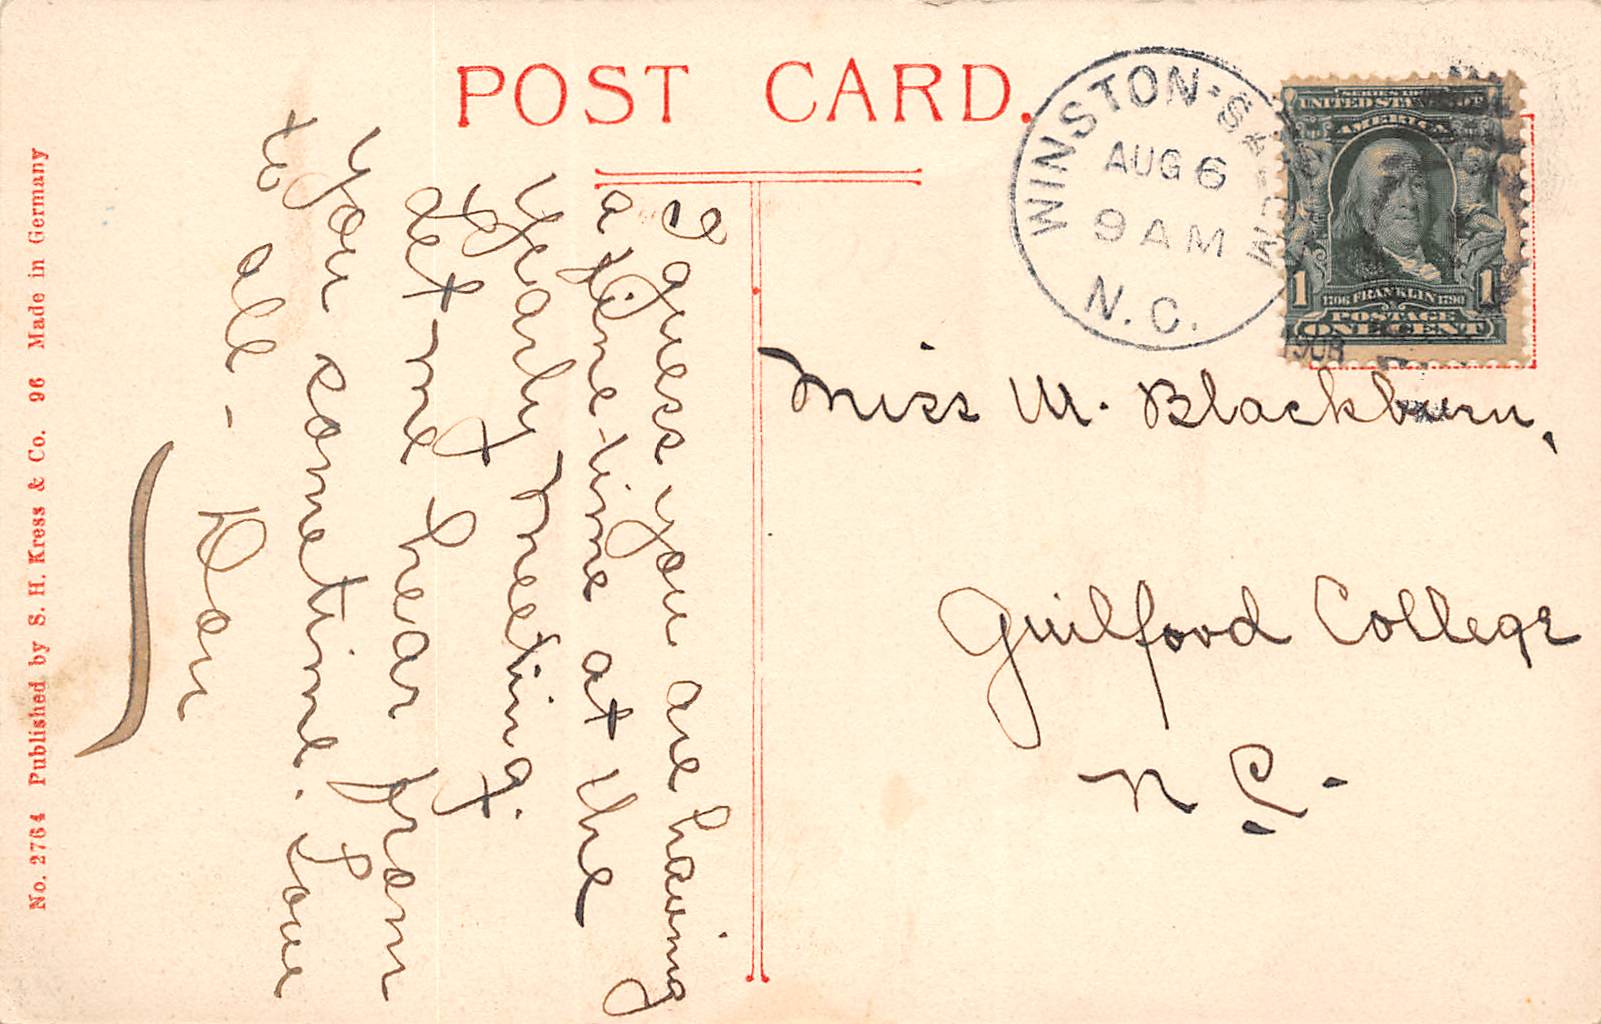 POST CARD.
WINSTON-SALEM
AUG 6
9 AM
N.C.
1908
UNITED STATES OF
AMERICA
1 1
1706 FRANKLIN 1790
POSTAGE
ONE CENT
I guess you are having
a fine time at the
Yearly Meeting.
Let me hear from
you sometime. Love
to all -
Miss M. Blackburn,
Guilford College
N.C.
No. 2764 Published by S. H. Kress & Co. 96 Made in Germany